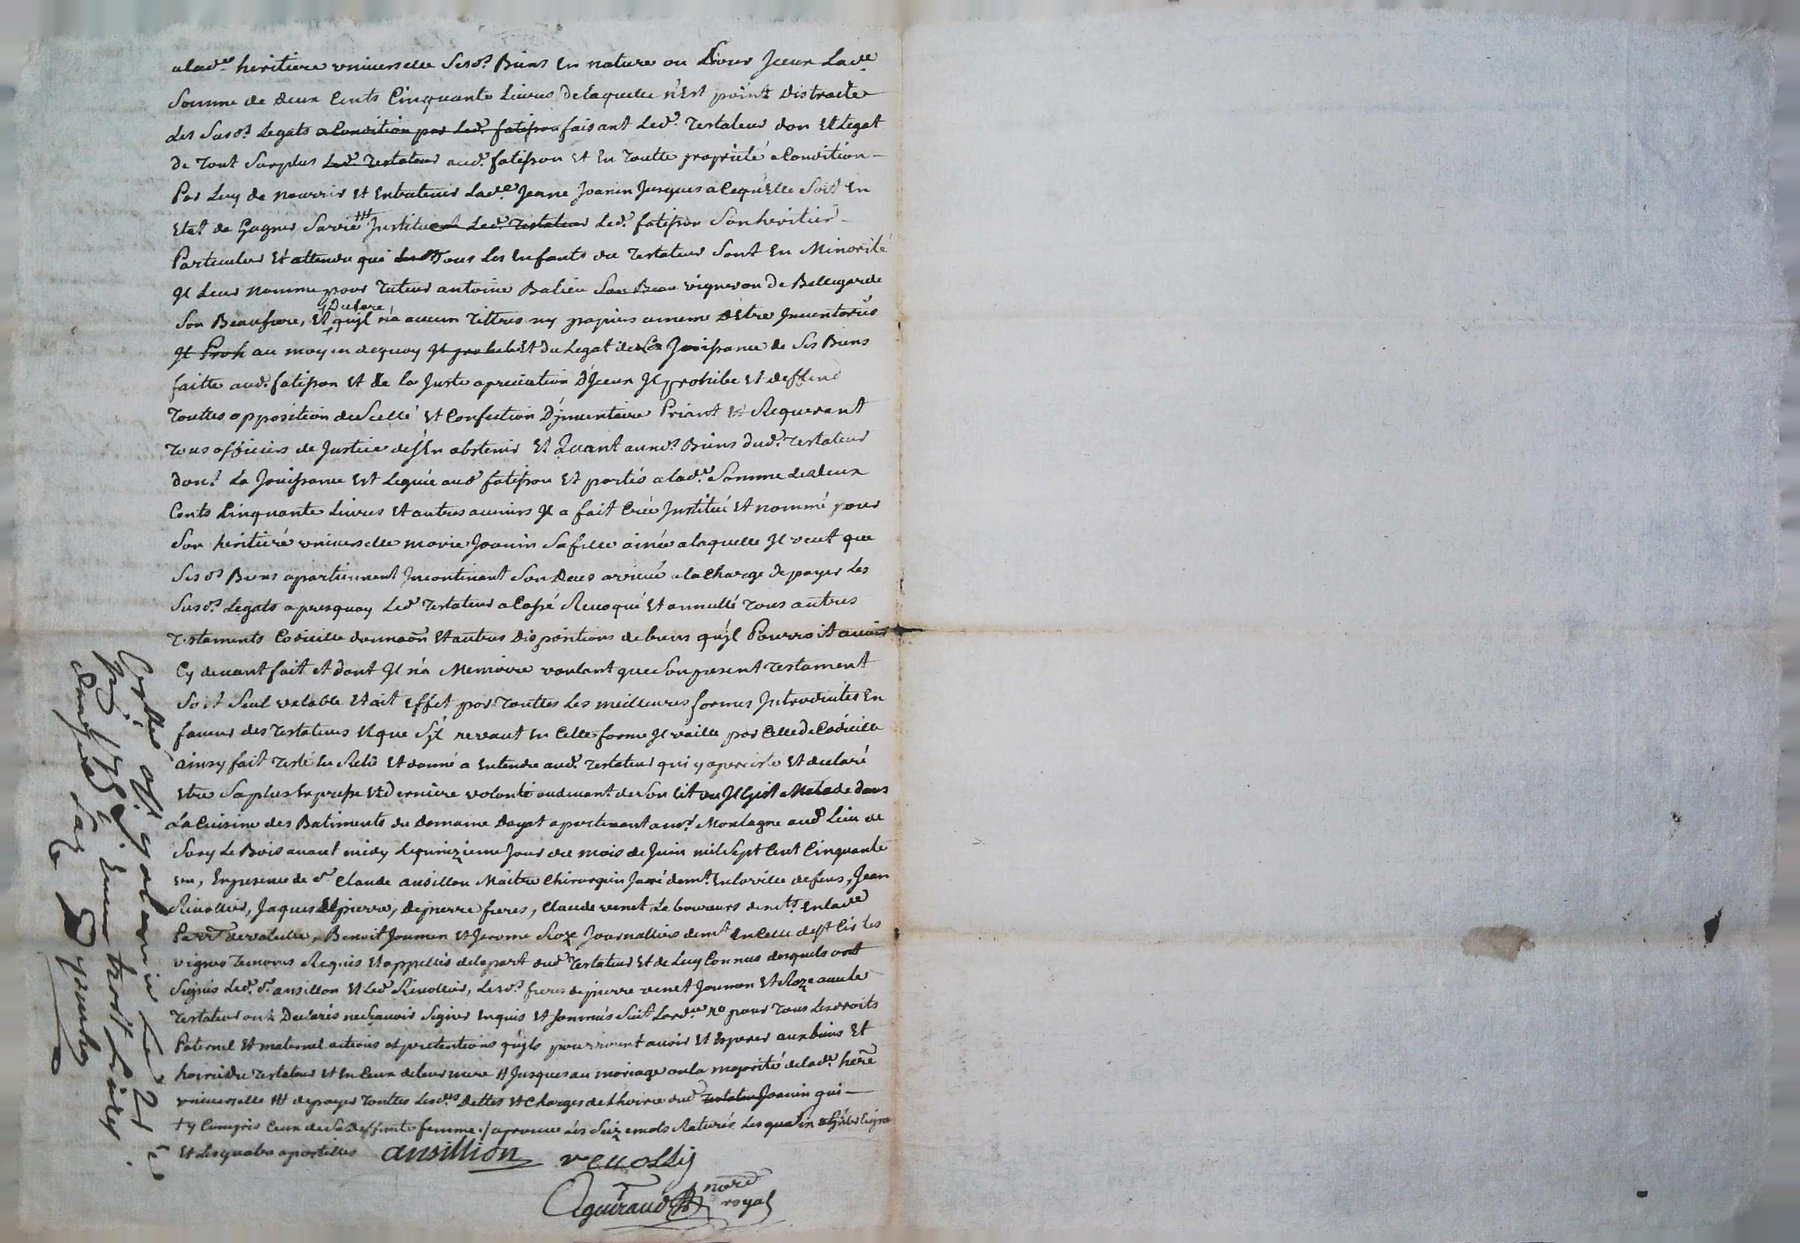 a lad.e heritiere universelle Sesd.s Biens En nature ou Livrer Jceux Lad.e
Somme de deux Cents Cinquante Livres de laquelle n'Est point Distraite
des Susd.s Legats a Condition par Led.t fatisson faisant Led.t Testateur don Et Legat
de Tout Surplus Led.t Testateur aud.t fatisson Et En Toutte propriété a Condition
Par Luy de nourrir Et Entretenir Lad.e Jeane Joanin Jusques a Cequ'Elle Soit En
Etat de Gagner Sa vie ttt Jnstituant Led.t Testateur Led.t fatisson Son heritier
Particulier Et attendu que Tous Les Enfants du Testateur Sont En Minorité
Jl Leur nomme pour Tuteur antoine Balieu Son Beau vigneron de Bellegarde
Son Beaufrere, Et Declare qu'jl n'a aucun Tittres ny papiers a meme D'Etre Jnventoriés
Jl Proh au moyen dequoy Jl prohibe Et Du Legat de La Jouissance de Ses Biens
faitte aud.t fatisson Et de la Juste apreciation D'Jceux Jl prohibe Et deffend
Touttes opposition de Scellé Et Confection D'jnventaire Priant Et Requerant
Tous officiers de Justice de S'En abstenir Et Quant auxd.s Biens dud.t Testateur
dont La Jouissance Est Leguée aud.t fatisson Et portés a lad.e Somme de deux
Cents Cinquante Livres Et autres avenirs Jl a fait Créé Jnstitué Et nommé pour
Son heritiere universelle marie Joanin Sa fille ainée a laquelle Jl veut que
Sesd.s Biens apartiennent Jncontinent Son Deces arrivé a la Charge de payer Les
Susd.s Legats apres quoy Led.t Testateur a Cassé Revoqué Et annullé Tous autres
Testaments Codicille donnaõn Et autres Dispositions de biens qu'jl Pourroit avoir
Cy devant fait et dont Jl n'a Memoire voulant que Son present Testament
Soit Seul valable Et ait Effet par Touttes Les meilleures formes Jntroduites En
faveur des Testateurs Et que S'jl ne vaut En Celle forme Jl vaille par Celle de Codicille
ainsy fait Testé Lu Relu Et donné a Entendre aud.t Testateur qui y a persisté Et declaré
Etre Sa plus Expresse Et Derniere volonté au devant de Son Lit ou Jl Gist Malade dans
La Cuisine des Batiments du Domaine Dayat apartenant au s.r Montagne aud.t Lieu de
Sury Le Bois avant midy Le quinzieme Jour du mois de Juin mil Sept Cent Cinquante
un, En presence de s.r Claude ansillon Maitre Chirurgien Juré dem.t En la ville de feurs, Jean
Rivollier, Jaques Et pierre, Depierre freres, Claude venet, Laboureurs dem.ts En lad.e
Parr.e de valeille, Benoit Joumon Et Jerome Roze Journalliers dem.t En Celle de s.t Cir les
vignes Temoins Requis Et appellés de la part dud.t Testateur Et de Luy Connus desquels ont
Signés Led.t s.r ansillon Et Led.t Rivollier, Lesd.s freres depierre venet Joumon Et Roze avec le
Testateur ont Declarés ne Sçavoir Signer Enquis Et Sommés Suivt Lord.ce ro pour Tous Les droits
Paternel Et maternel actions et pretentions qu'jls pourroient avoir Et Esperer aux biens Et
hoirie du Testateur Et En Ceux de leur mere tt Jusques au mariage ou la majorité de lad.e here
universelle ttt de payer Touttes Lesd.es Dettes Et Charges de L'hoirie dud.t Testateur Joanin qui
t y Compris Ceux de Sa deffunte femme ./. aprouvé Les Seize mots Raturés
Et Les quatre apostilles ansillion revollij
Aguiraud no.re
royal
Con.llé a S.t galmier Le 21
Juin 1751. Reçu trois Livres
Cinq Sols